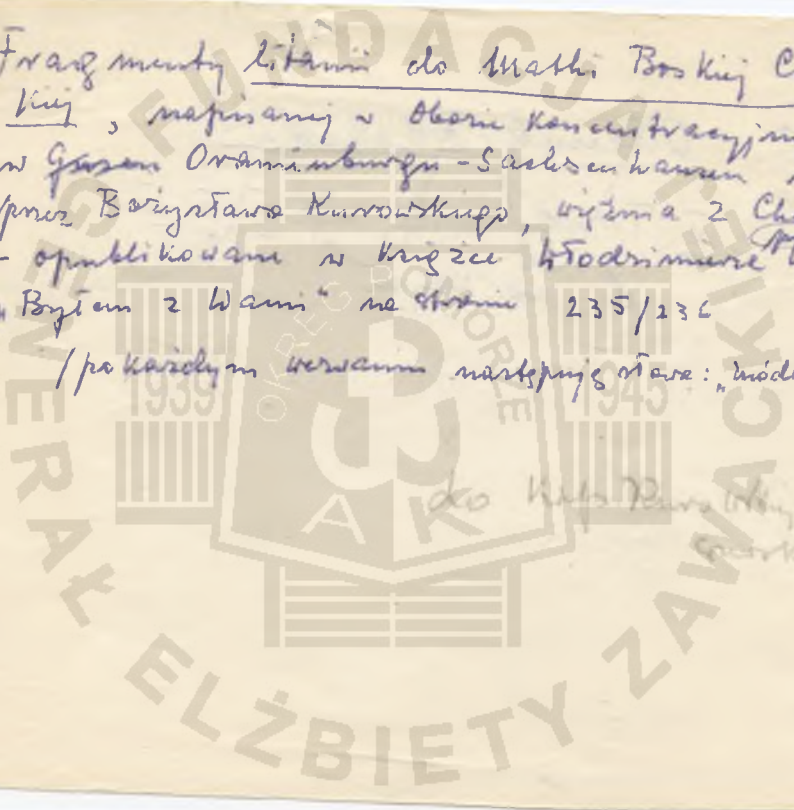 Fragmenty litanii do Matki Boskiej C
kiej, napisanej w obozie koncentracyjn
w Oranienburgu - Sachsenhausen
przez Bożysława Kurowskiego, więźnia z
- opublikowane w książce Włodzimierza
"Byłem z Wami" na stronie 235/236
/po każdym wezwaniu następują słowa: "módl
do
FUNDACJA
GENERAŁ ELŻBIETY ZAWACKIEJ
OKRĘG POMORZE
1939 1945
AK